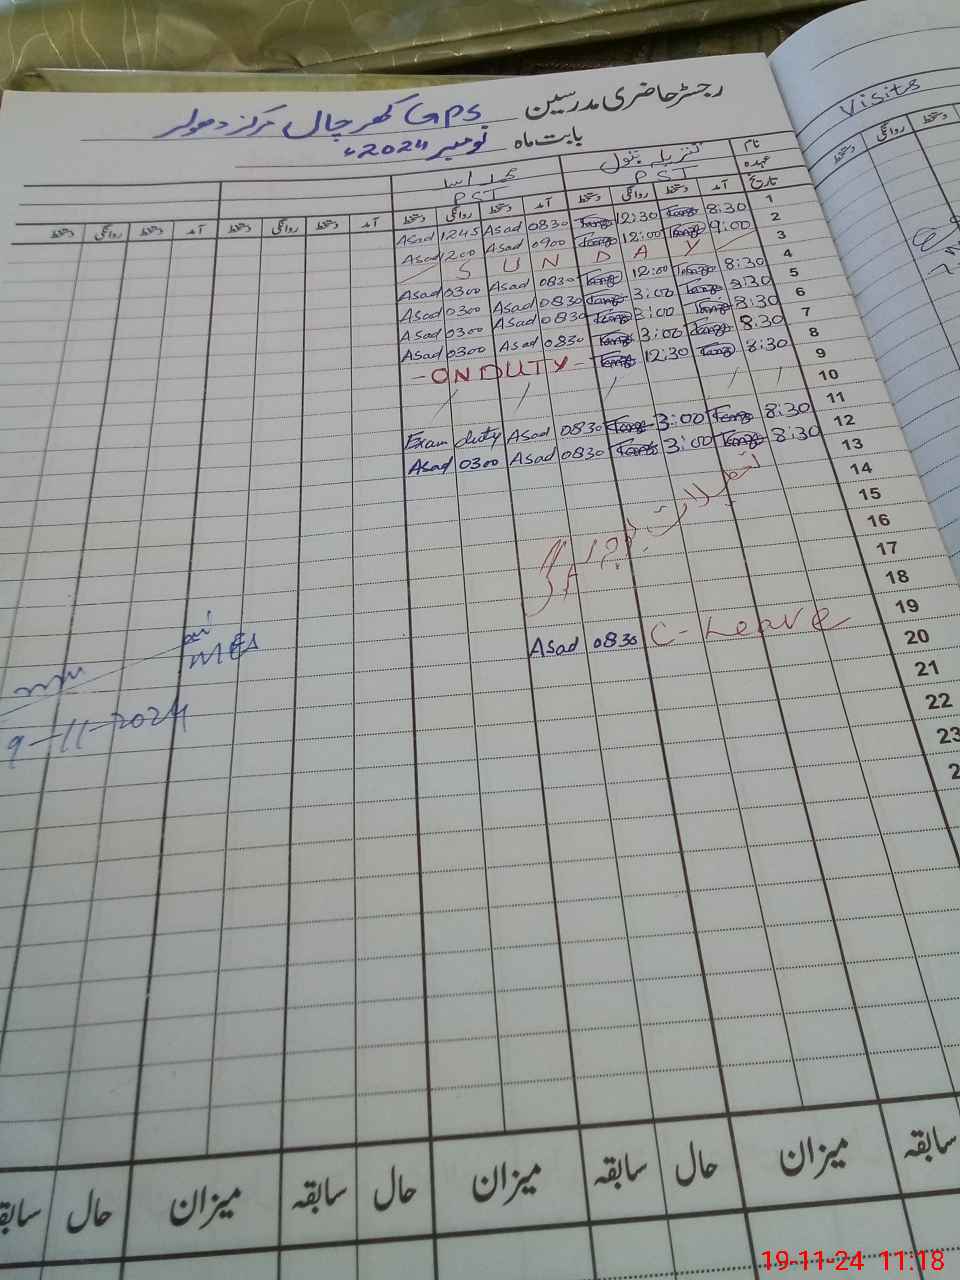 رجسٹر حاضری مدرسین GPS کھرچال مرکز دھولر
بابت ماہ نومبر 2024ء
Visits
نام تنزیلہ بتول محمد اسد
عہدہ PST PST
تاریخ آمد دستخط روانگی دستخط آمد دستخط روانگی دستخط آمد دستخط روانگی دستخط آمد دستخط روانگی دستخط
1 8:30 12:30 0830 Asad 1245 Asad
2 9:00 12:00 0900 Asad 1200 Asad
3 SUNDAY
4 8:30 12:00 0830 Asad 0300 Asad
5 8:30 3:00 0830 Asad 0300 Asad
6 8:30 3:00 0830 Asad 0300 Asad
7 8:30 3:00 0830 Asad 0300 Asad
8 8:30 12:30 - ON DUTY -
9
10
11 8:30 3:00 0830 Asad Exam duty
12 8:30 3:00 0830 Asad 0300 Asad
13
14
15
16
17
18
19 C-Leave 0830 Asad
20
21
22
23
2
MEA
9-11-2024
سابقہ میزان حال سابقہ میزان حال سابقہ میزان حال سابقہ
19-11-24 11:18